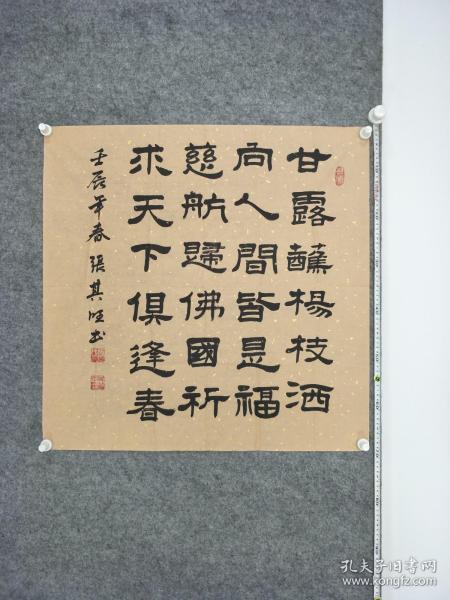 甘露蘸楊枝洒
向人間皆是福
慈航歸佛國祈
求天下俱逢春
壬辰年春 張其旺书
孔夫子旧书网
www.kongfz.com